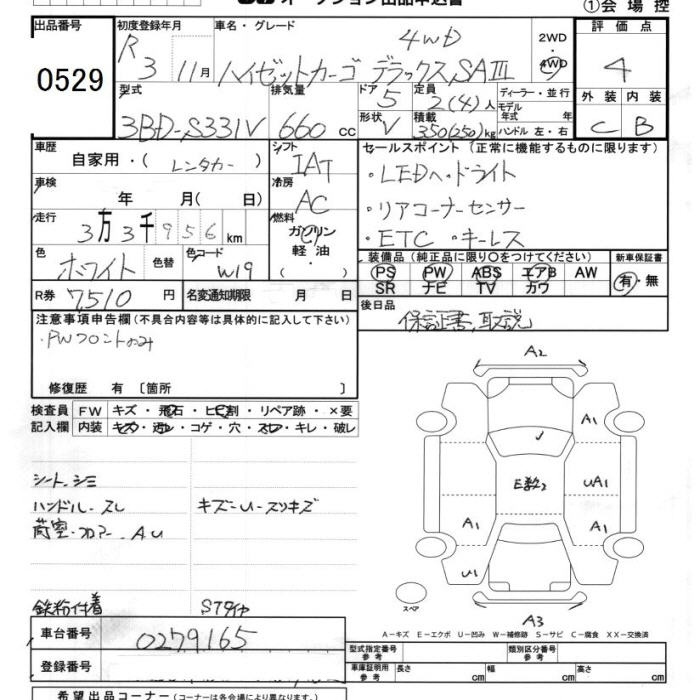 オークション出品申込書
①会場控
出品番号
0529
初度登録年月
R 3 11月
車名・グレード
4WD
ハイゼットカーゴ デラックスSAIII
2WD
4WD
評価点
4
外装 内装
C B
型式
3BD-S331V
排気量
660 cc
ドア
5
形状
V
定員
2(4)人
積載
350(250)kg
ディーラー・並行
モデル
年式 年
ハンドル 左・右
車歴
自家用・(レンタカー)
シフト
IAT
車検
年 月(日)
冷房
AC
走行
3万3千956km
燃料
ガソリン
軽油
・( )
色
ホワイト
色替
色コード
W19
R券 7,510円
名変通知期限 月 日
セールスポイント(正常に機能するものに限ります)
・LEDヘッドライト
・リアコーナーセンサー
・ETC ・キーレス
装備品(純正品に限り○をつけてください)
PS PW ABS エアB AW
SR ナビ TV カワ
新車保証書
有・無
後日品
保証書、取説
注意事項申告欄(不具合内容等は具体的に記入して下さい)
・PWフロントのみ
修復歴 有 〔箇所 〕
検査員 FW キズ・飛石・ヒビ割・リペア跡・×要
記入欄 内装 キズ・汚レ・コゲ・穴・スレ・キレ・破レ
シート、シミ
ハンドル、スレ キズ-U-スリキズ
荷室・フロアー AU
鉄粉付着 STタイヤ
A2
A1
E数2
UA1
A1
A1
U1
スペア
A3
A-キズ E-エクボ U-凹み W-補修跡 S-サビ C-腐食 XX-交換済
車台番号 0279165
登録番号
型式指定番号
参考
類別区分番号
参考
車庫証明用
参考
長さ cm 幅 cm 高さ cm
希望出品コーナー(コーナーは各会場により異なります。)